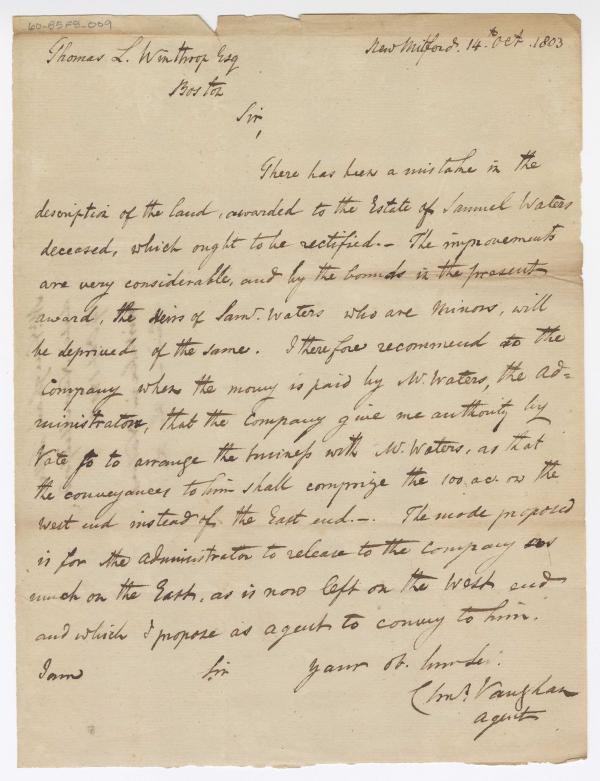 60-55FS-009
New Milford. 14th Oct. 1803
Thomas L. Winthrop Esq
Boston
Sir,
There has been a mistake in the
description of the land, awarded to the Estate of Samuel Waters
deceased, which ought to be rectified.- The improvements
are very considerable, and by the bounds in the present
award, the Heirs of Saml. Waters who are Minors, will
be deprived of the same. I therefore recommend to the
Company when the money is paid by Mr. Waters, the Ad=
ministrator, that the Company give me authority by
Vote so to arrange the business with Mr. Waters, as that
the conveyances to him shall comprize the 100. ac. on the
West end instead of the East end.-. The mode proposed
is for the administrator to release to the Company as
much on the East, as is now left on the West end
and which I propose as agent to convey to him.
I am Sir your ob. hum Se.
Chas. Vaughan
agent